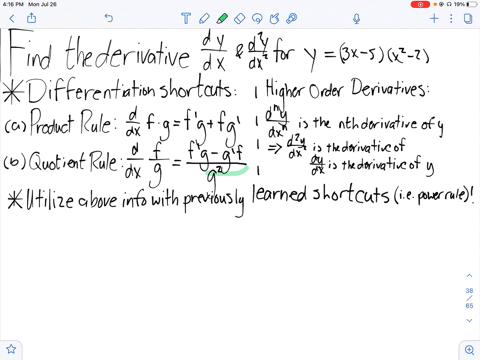 4:16 PM Mon Jul 26
19%
Find the derivative dy/dx & d²y/dx² for y = (3x-5)(x²-2)
* Differentiation shortcuts:
(a) Product Rule: d/dx f·g = f'g + fg'
(b) Quotient Rule: d/dx f/g = f'g - g'f / g²
Higher Order Derivatives:
dⁿy/dxⁿ is the nth derivative of y
⇒ d²y/dx² is the derivative of
dy/dx is the derivative of y
* Utilize above info with previously learned shortcuts (i.e. power rule)!
38
/
65